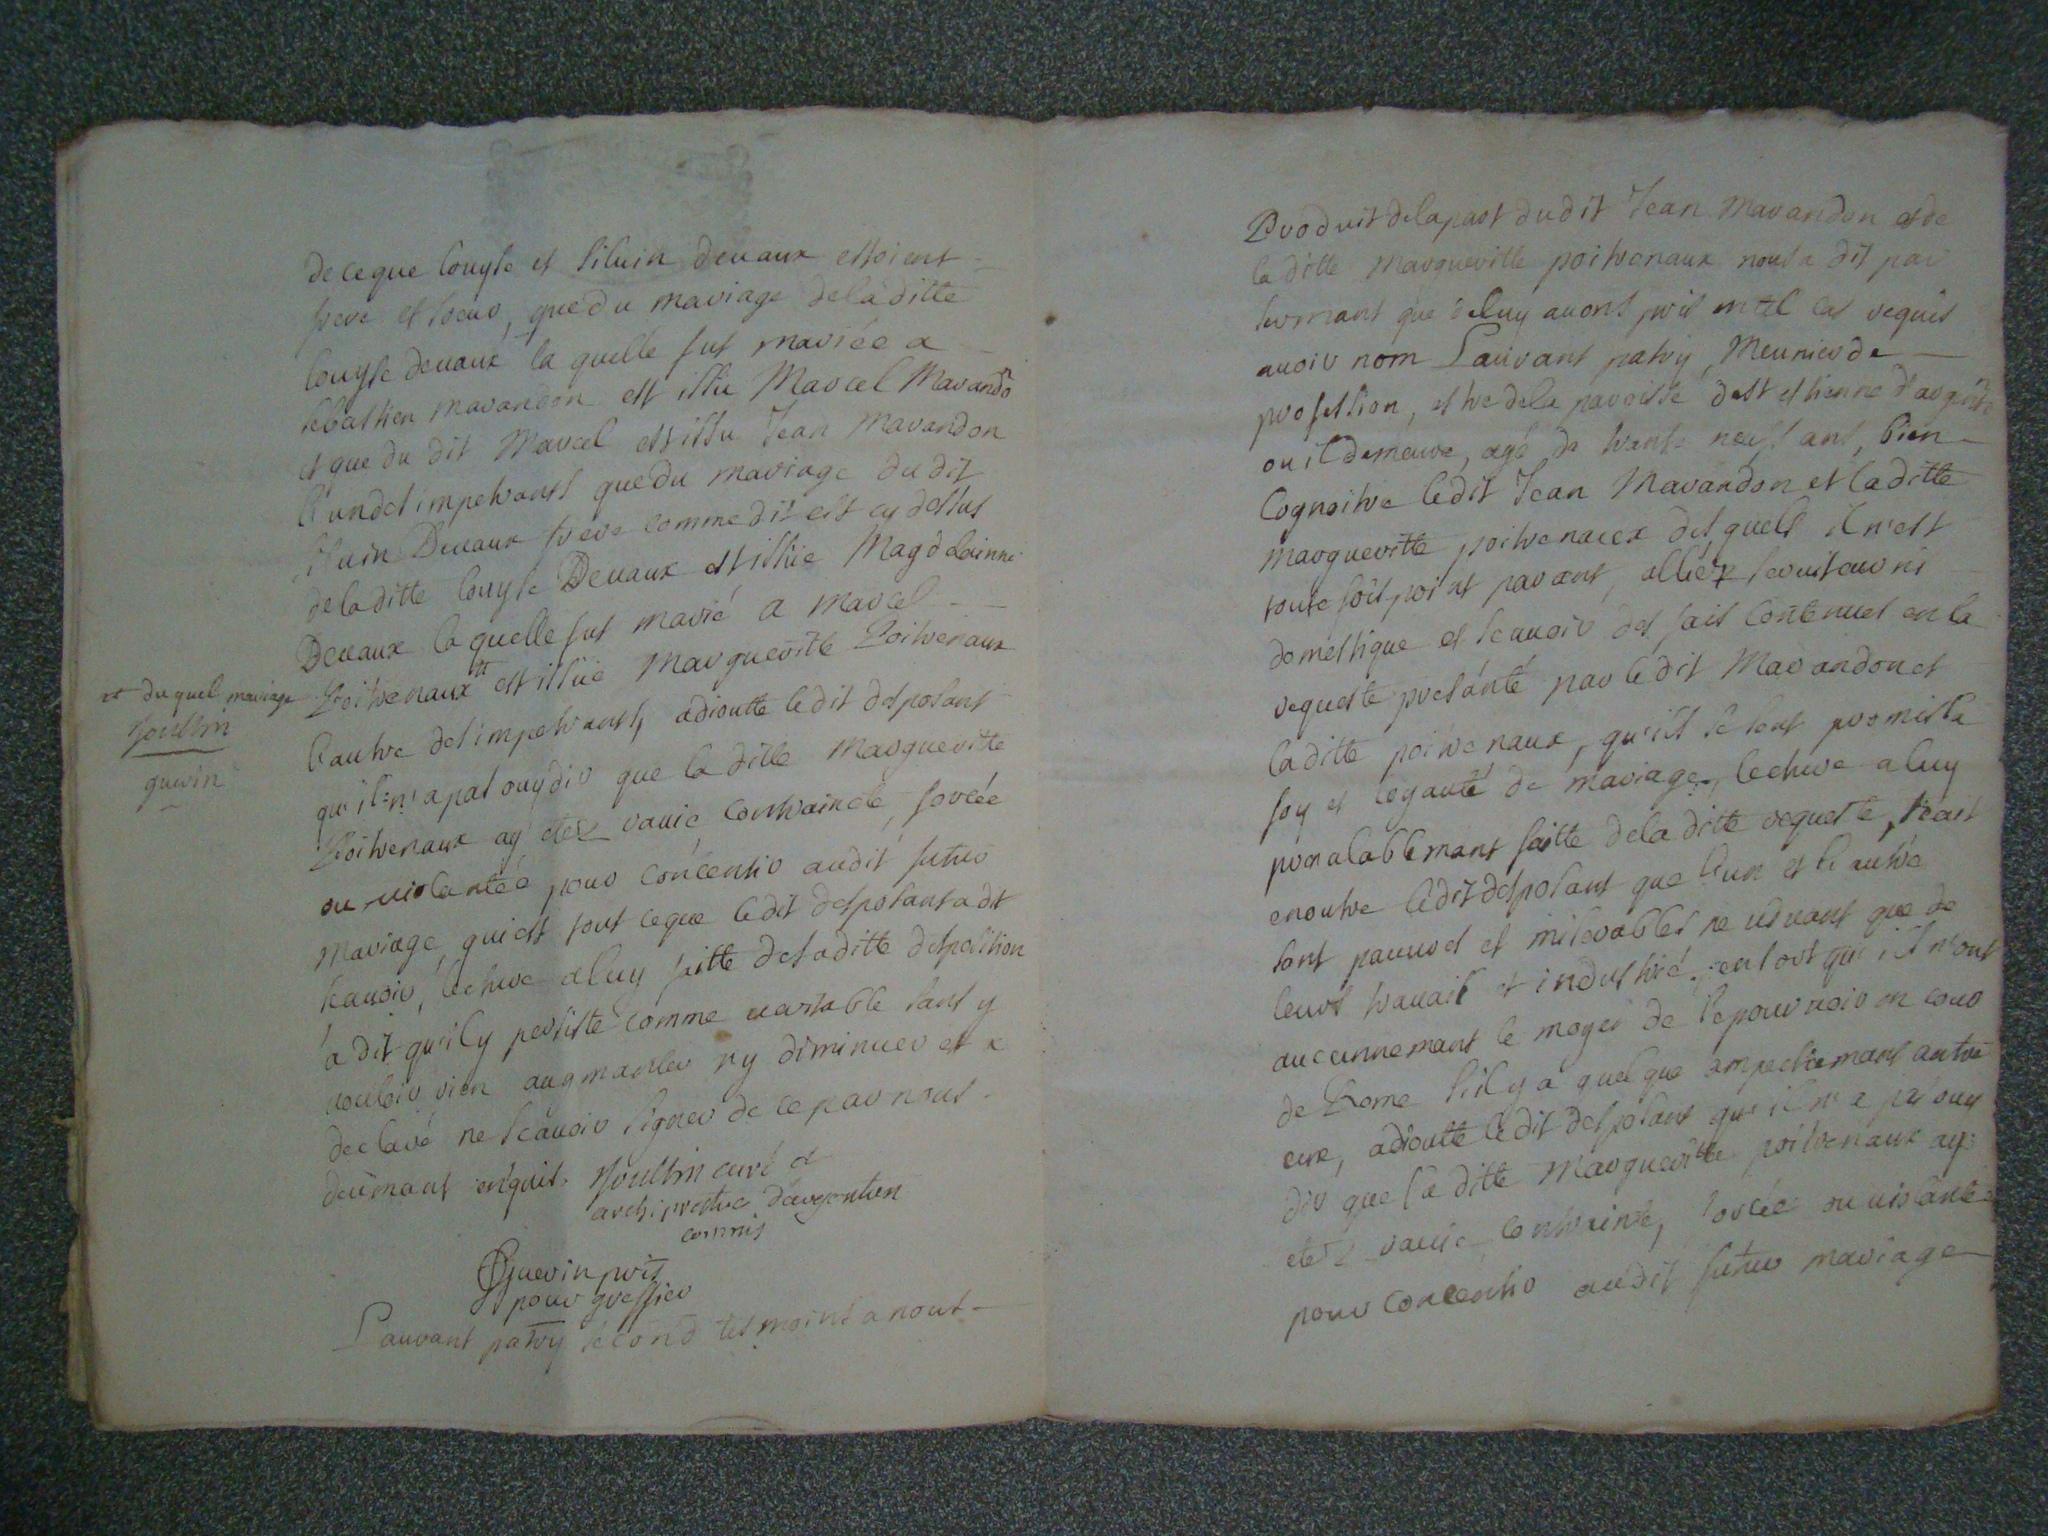 de ce que Louyse et Siluin Deuaux estoient
frere et soeur, que du mariage de la ditte
Louyse deuaux la quelle fut mariée a
sebastien marandon est issu Marcel Marandõ
et que du dit Marcel est issu Jean Marandon
l'un des impetrants que du mariage du dit
siluin Deuaux frere comme dit est cy dessus
de la ditte Louyse Deuaux est issüe Magdelainne
Deuaux la quelle fut marié a marcel
et du quel mariage
Moullin
guerin
Poitrenaux est issüe Margueritte Poitrenaux
l'autre des impetrants, adioutte le dit desposant
qu'il n'a pas ouy dir que la ditte Margueritte
Poitrenaux ay etez rauie, contraincte, forcée
ou uiolantée pour concentir audit futur
mariage, qui est tout ce que le dit desposant a dit
scauoir, lecture a luy faitte de sa ditte desposition
a dit qu'il y persiste comme veritable sans y
vouloir rien augmanter ny diminuer et a
declaré ne scauoir signer de ce par nous
deümant enquis. Moullin curé et
archiprestre d'argenton
commis
Guerin prtr
pour greffier
Lauvant patry second tesmoins a nous
Produit de la part du dit Jean Marandon et de
la ditte Margueritte poitrenaux nous a dit par
sermant que de luy auons pris en tel cas requis
auoir nom Lauvant patry, Meunier de
profession, etre de la paroisse de st estienne d'argentõ
ou il demeure, agé de trante neuf ans, bien
Cognoitre le dit Jean Marandon et la ditte
Margueritte poitrenaux des quels il n'est
toute fois point parant, alliéz seruiteur ni
domestique et scauoir des fais contenues en la
requeste presánté par le dit Marandon et
la ditte poitrenaux, qu'ils se sont promis la
foy et loyauté de mariage, lecture a luy
prealablemant faitte de la ditte requeste, scait
en outre le dit desposant que l'un et l'autre
sont pauures et miserables ne uiuant que de
leurs trauail et industrie, en sort qu'ils n'ont
aucunnemant le moyen de se pouruoir en cour
de Rome s'il y a quelque ampechemant antre
eux, adioutte le dit desposant qu'il n'a pas ouy
dir que la ditte Marguerite poitrenaux ay
etez rauie, contrainte, forcée ou uiolantée
pour concentir au dit futur mariage